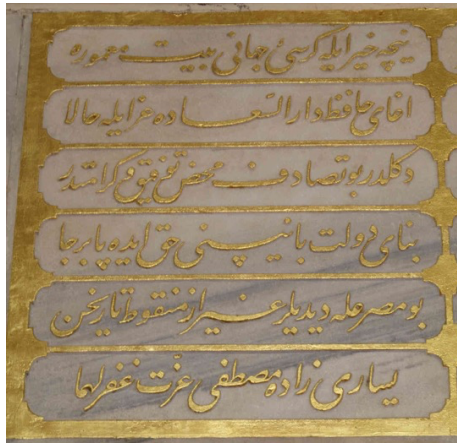 نیچه خیر ایله کرسی جهانی بیت معموره
اغای حافظ دار السعاده عز ایله حالا
دکلدر بو تصادف محض توفیق و کرامتدر
بنای دولت بانیسنی حق ایده پا بر جا
بو مصرعله دیدیلر غیر از منقوط تاریخن
یساری زاده مصطفی عزت غفر لهما